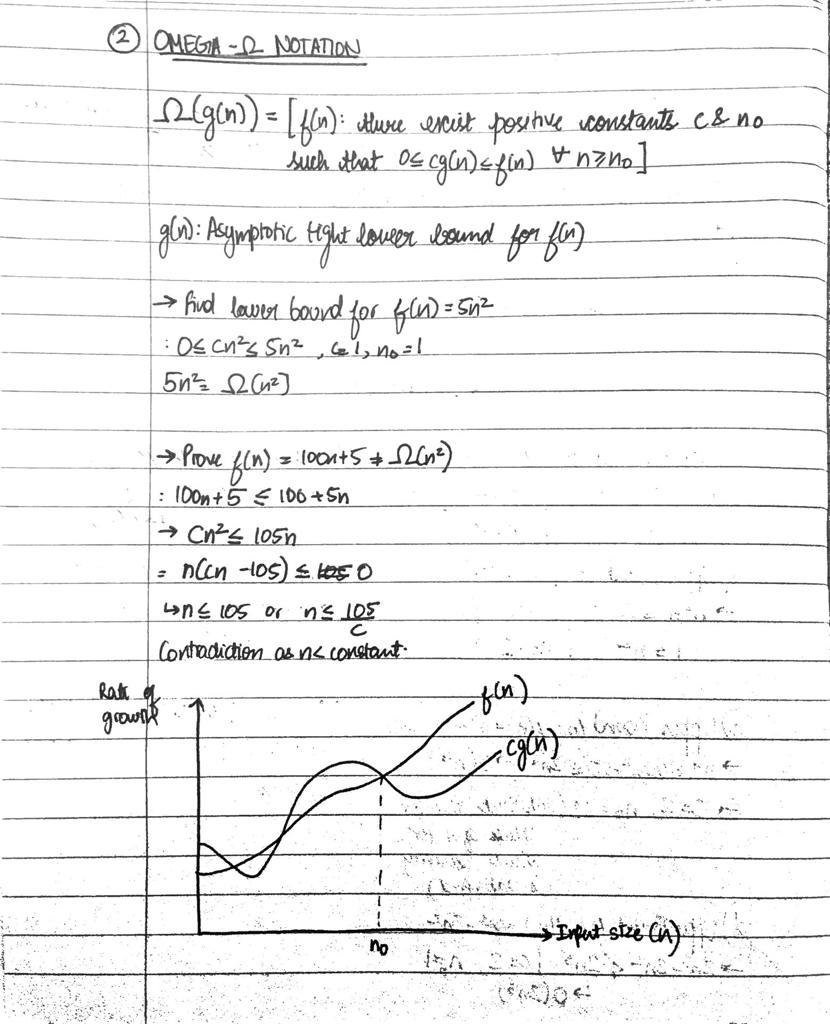 ② OMEGA - Ω NOTATION
Ω(g(n)) = [f(n): there exist positive constants c & n₀
such that 0≤ cg(n) ≤ f(n) ∀ n≥n₀]
g(n): Asymptotic tight lower bound for f(n)
→ Find lower bound for f(n) = 5n²
: 0≤ cn² ≤ 5n² , c=1, n₀=1
5n² = Ω(n²)
→ Prove f(n) = 100n+5 ≠ Ω(n²)
: 100n+5 ≤ 100+5n
→ Cn² ≤ 105n
= n(cn -105) ≤ 0
↳ n ≤ 105 or n ≤ 105/c
Contradiction as n< constant.
Rate of
growth
f(n)
cg(n)
n₀
Input size (n)